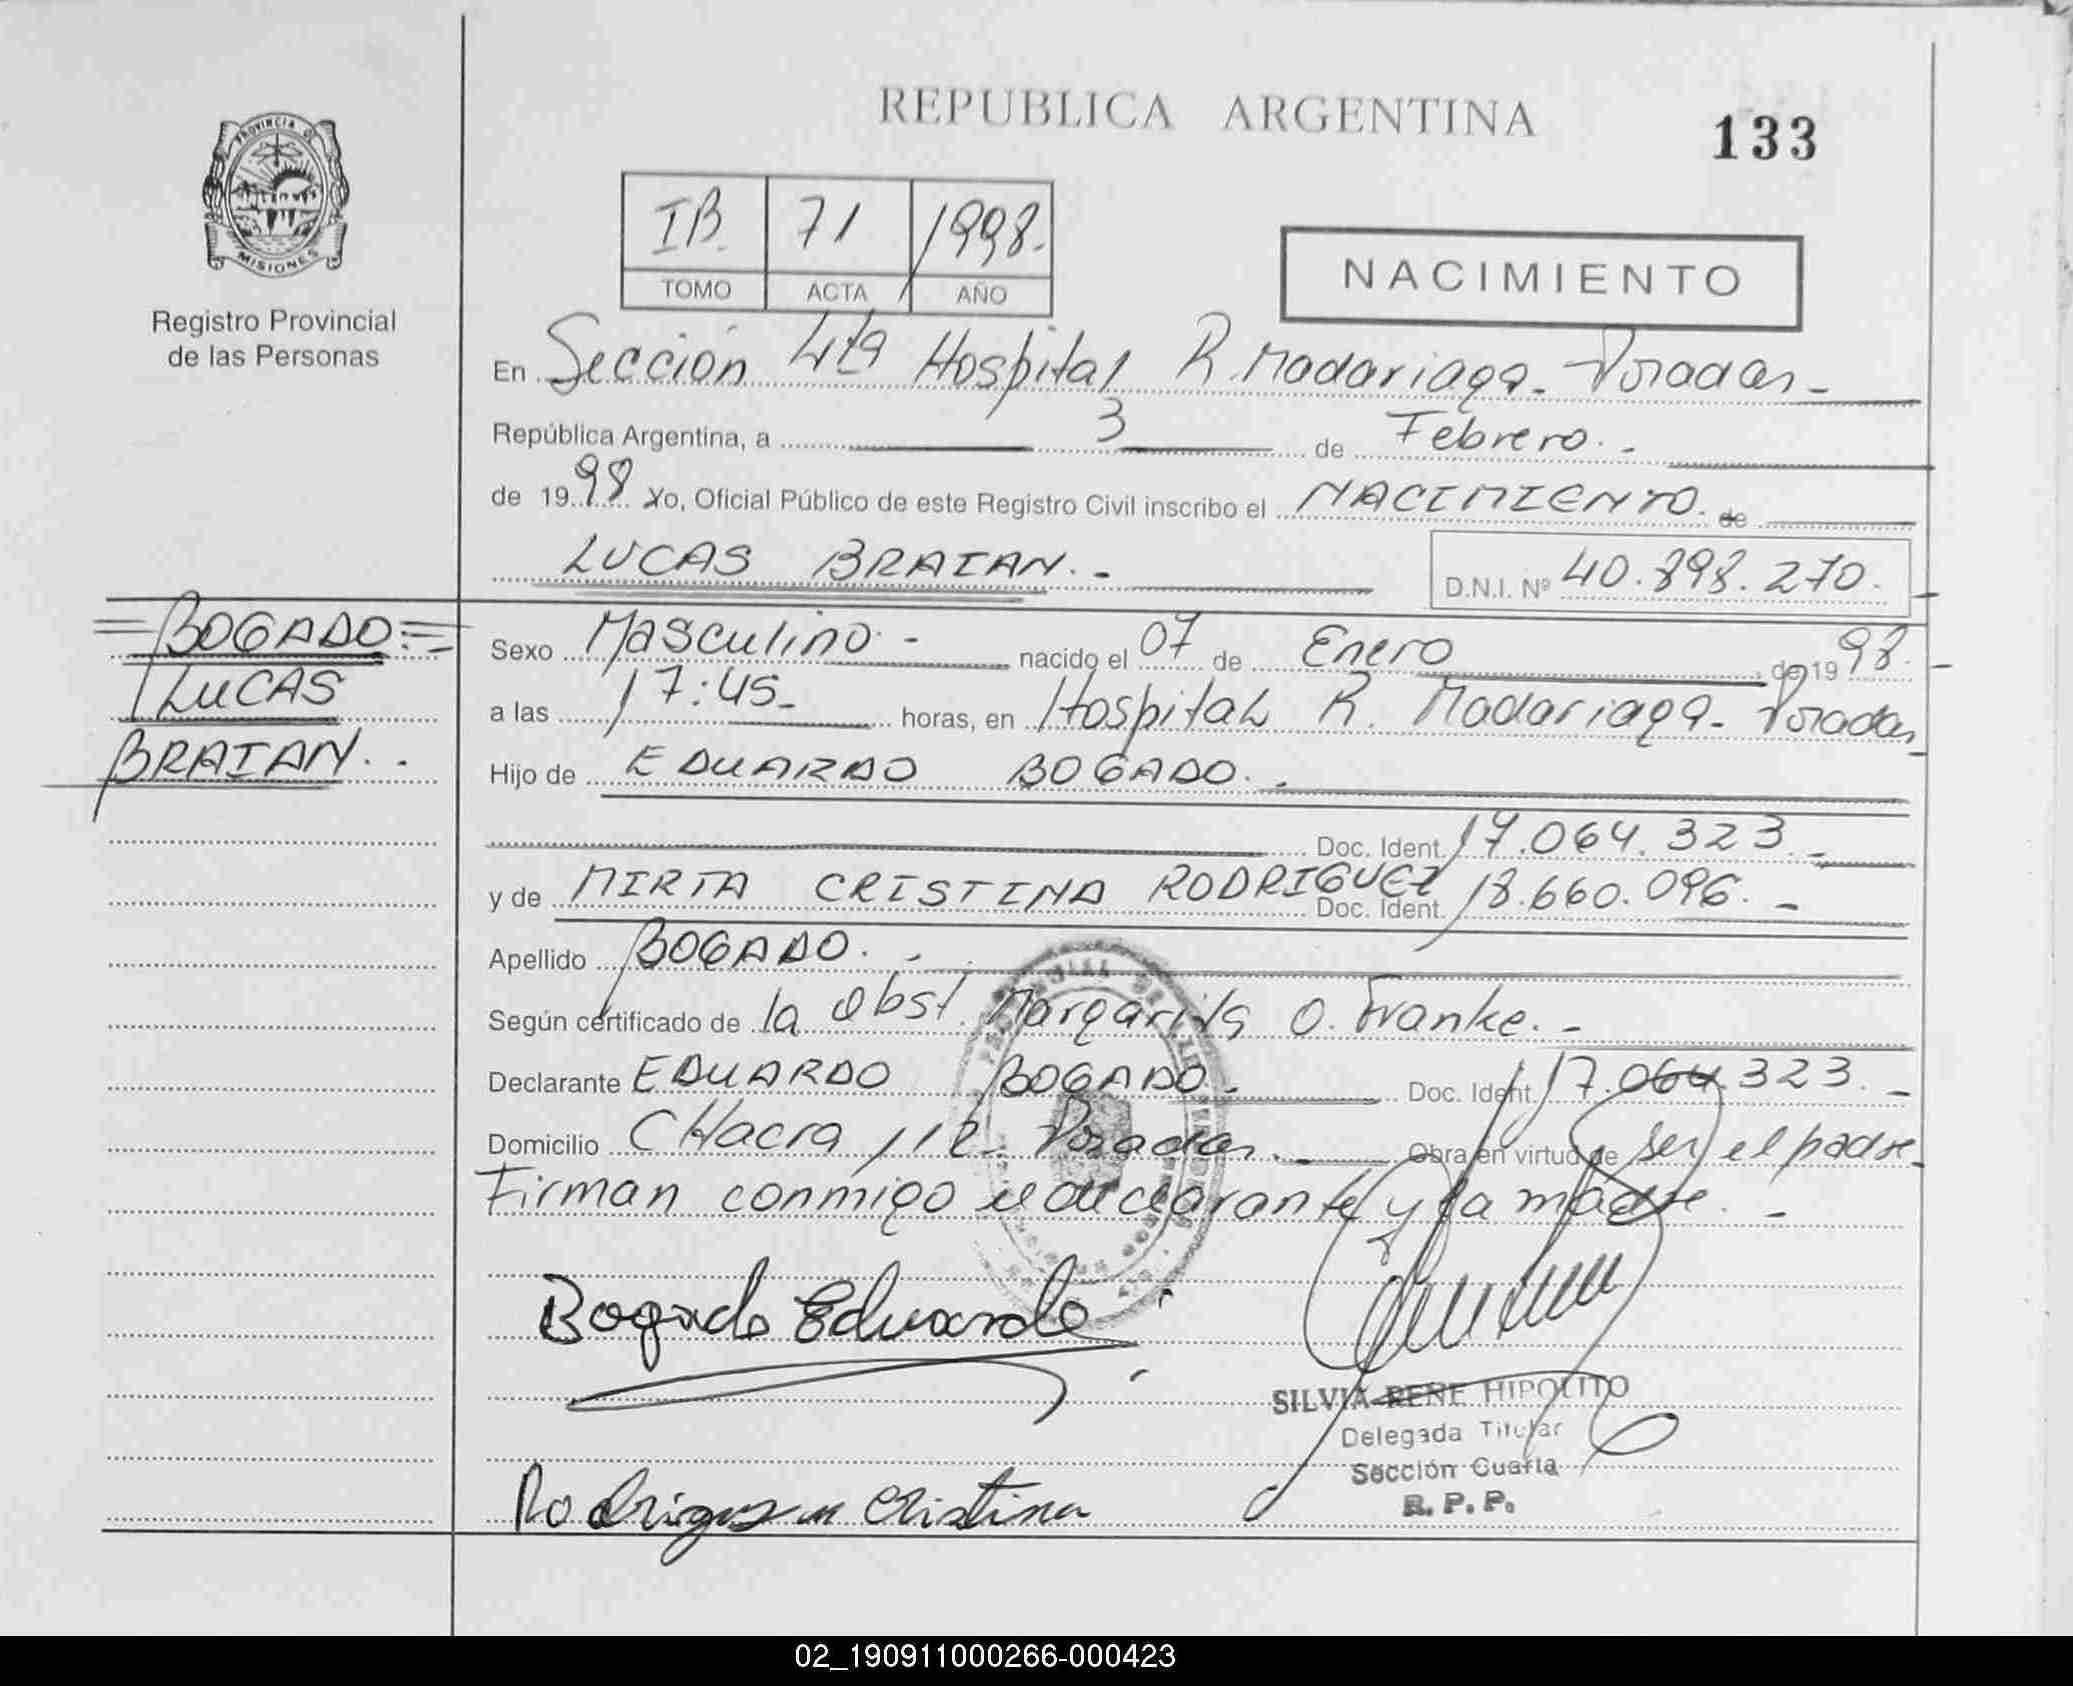 REPUBLICA ARGENTINA
133
PROVINCIA DE
MISIONES
Registro Provincial
de las Personas
IB. 71 1998.
TOMO ACTA AÑO
NACIMIENTO
En Sección 4ta Hospital R. Madariaga - Posadas -
República Argentina, a 3 de Febrero. -
de 1998. Yo, Oficial Público de este Registro Civil inscribo el NACIMIENTO. de
LUCAS BRAIAN. -
D.N.I. Nº 40.898.270.
BOGADO
LUCAS
BRAIAN. .
Sexo Masculino. - nacido el 07 de Enero de 1998. -
a las 17:45 - horas, en Hospital R. Madariaga - Posadas
Hijo de EDUARDO BOGADO. .
Doc. Ident. 17.064.323. -
y de MIRTA CRISTINA RODRIGUEZ Doc. Ident. 18.660.096. -
Apellido BOGADO. -
Según certificado de la obst. Margarita O. Franke. -
Declarante EDUARDO BOGADO - Doc. Ident. 17.064.323. -
Domicilio CHacra 112 - Posadas. - Obra en virtud de ser el padre
Firman conmigo el declarante y la madre. -
Bogado Eduardo
SILVIA RENE HIPOLITO
Delegada Titular
Sección Cuarta
R. P. P.
Rodriguez Cristina
02_190911000266-000423